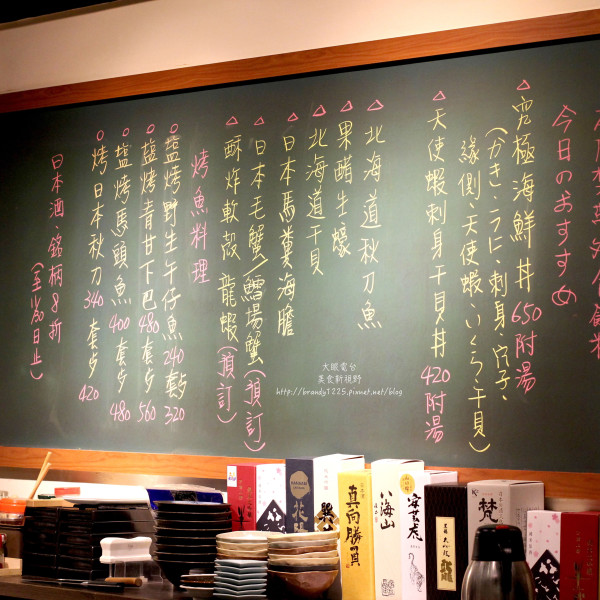 今日のおすすめ
△究極海鮮丼 650 附湯
(かき、うに、刺身、穴子、
緣側、天使蝦、いくら、干貝)
△天使蝦刺身干貝丼 420 附湯
△北海道秋刀魚
△果醋生蠔
△北海道干貝
△日本馬糞海膽
△日本毛蟹/鱈場蟹(預訂)
△酥炸軟殼龍蝦(預訂)
烤魚料理
○鹽烤野生午仔魚 240 套步 320
○鹽烤青甘下巴 480 套步 560
○鹽烤馬頭魚 400 套步 480
○烤日本秋刀 340 套步 420
日本酒、銘柄8折
(至11/30日止)
大眼電台
美食新視野
http://brandy1225.pixnet.net/blog
真向勝
八海山
安芸虎
梵